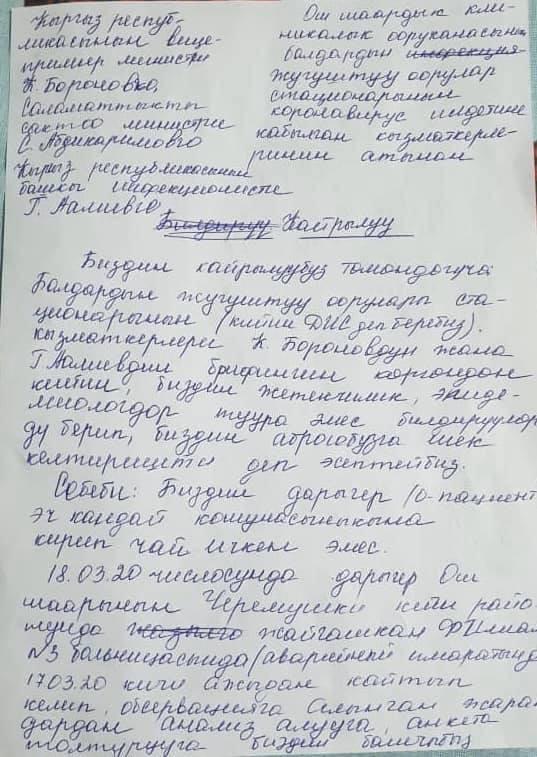 Кыргыз респуб-
ликасынын вице-
премьер министри
К. Бороновко,
Саламаттыкты
сактоо министри
С. Абдикаримовго
Кыргыз республикасынын
башкы инфекционисти
Г. Аалиевге
Ош шаардык кли-
никалык ооруканасынын
балдардын инфекция-
жугуштуу оорулар
стационарынын
коронавирус илдетине
кабылган кызматкерле-
ринин атынан
Билдирүү Кайрылуу
Биздин кайрылуубуз томондогуча
Балдардын жугуштуу оорулары ста-
ционарынын (кийин ДИС деп беребиз).
кызматкерлери К. Бороновдун жана
Г Аалиевдин брифингин коргондон
кийин, биздин жетекчилик, эпиде-
миологдор туура эмес билдируулор-
ду берип, биздин абройубузга шек
келтиришти деп эсептейбиз.
Себеби: Биздин дарыгер /0-пациент
эч кандай кошунасыныкына
кирип чай ичкен эмес.
18.03.20 числосунда дарыгер Ош
шаарынын Черемушки кичи райо
нунда жайгашкан Филиал
№3 больницасында/аварийней имаратында
17.03.20 кичи ажыдан кайтып
келип, обсервацияга алынган жаран
дардан анализ алууга, анкета
толтурууга биздин башчыбыз